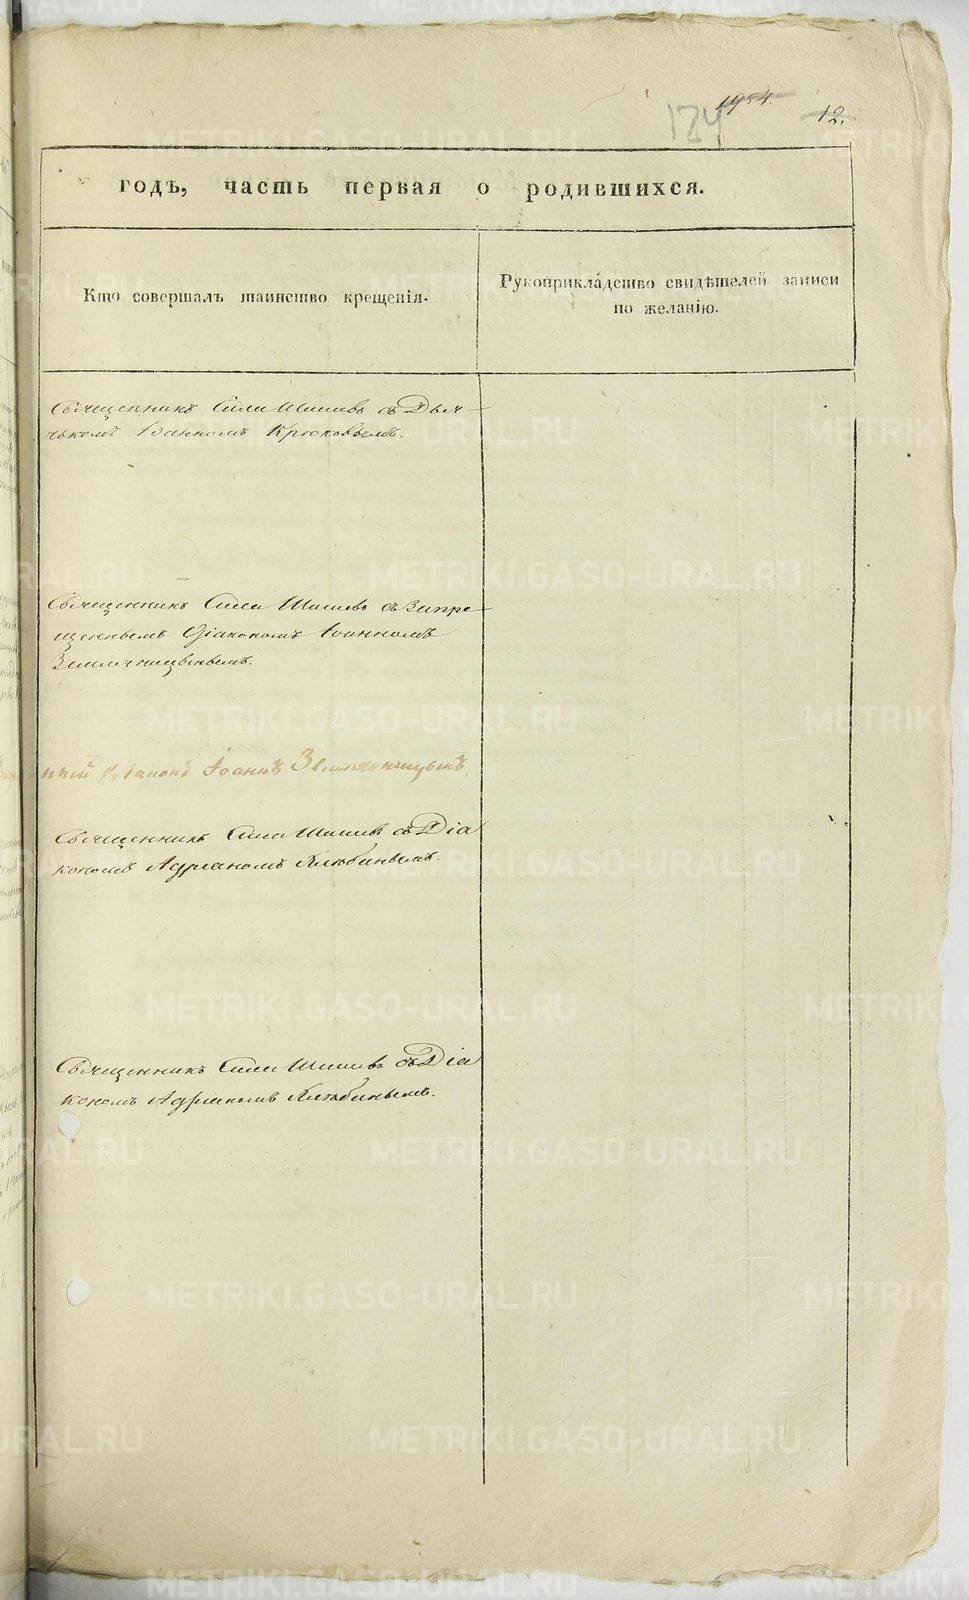 124 1954. 12.
годѣ, часть первая о родившихся.
Кто совершалъ таинство крещенія.
Рукоприкладство свидѣтелей записи
по желанію.
Священникъ Сила Шишевъ съ Дья-
чкомъ Іоанномъ Крюковымъ.
Священникъ Сила Шишевъ съ Запре-
щеннымъ Діакономъ Іоанномъ
Земляницынымъ.
нный Діаконъ Іоаннъ Земляницынъ.
Священникъ Сила Шишевъ съ Діа
кономъ Адріаномъ
Священникъ Сила Шишевъ съ Діа
кономъ Адріаномъ
METRIKI.GASO-URAL.RU